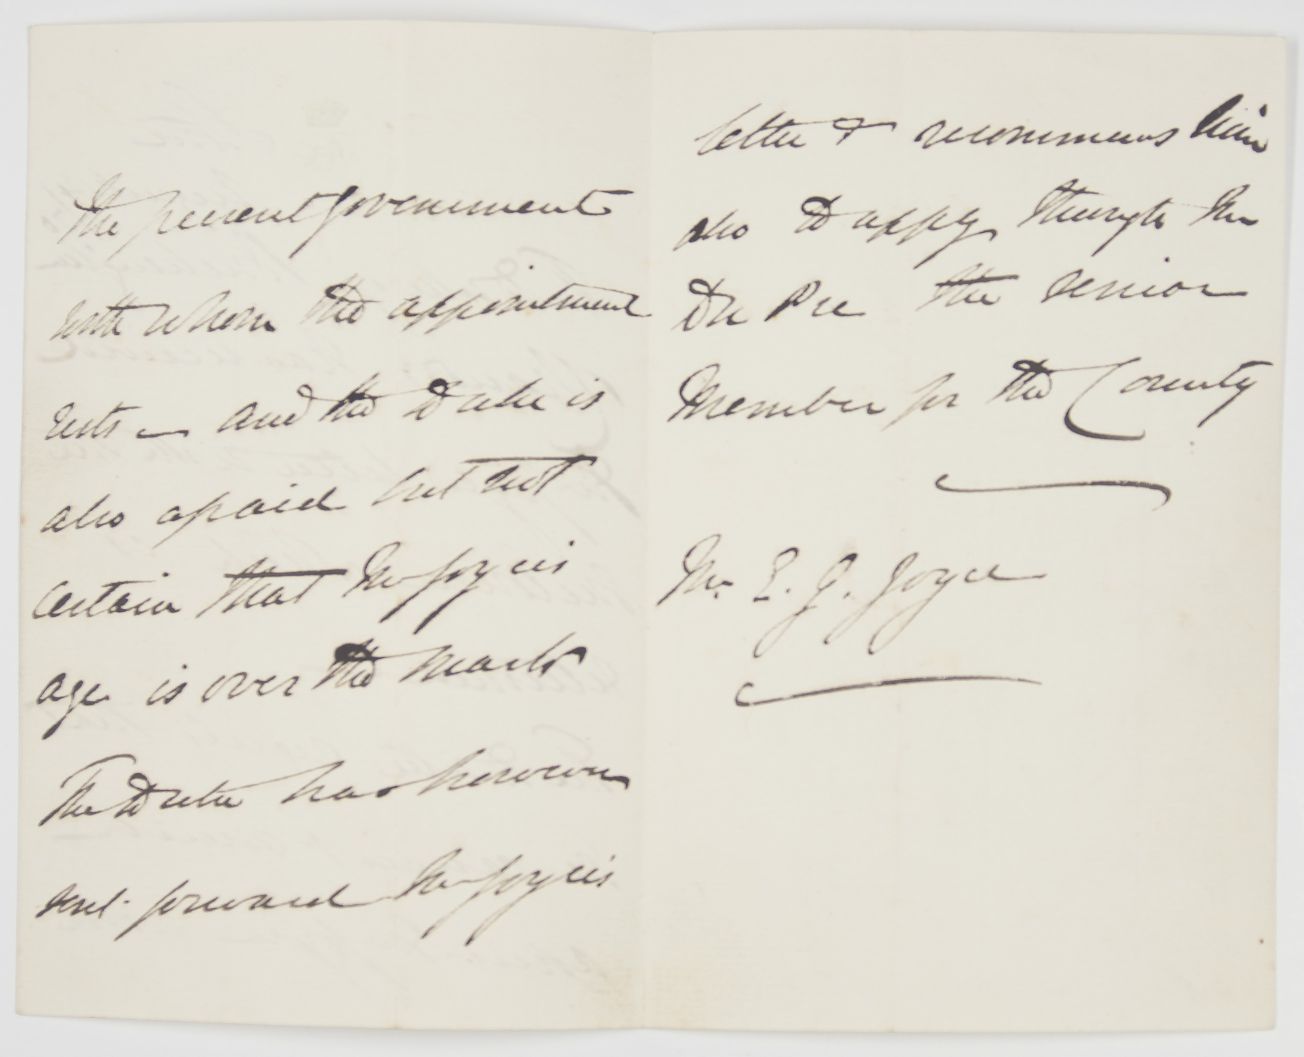 the present Government
with whom the appointment
rests – and the Duke is
also afraid but not
certain that Mr Joyce's
age is over the mark
The Duke has however
sent forward Mr Joyce's
letter & recommends him
also to apply through Mr
Du Pre the senior
Member for the County
Mr. E. J. Joyce